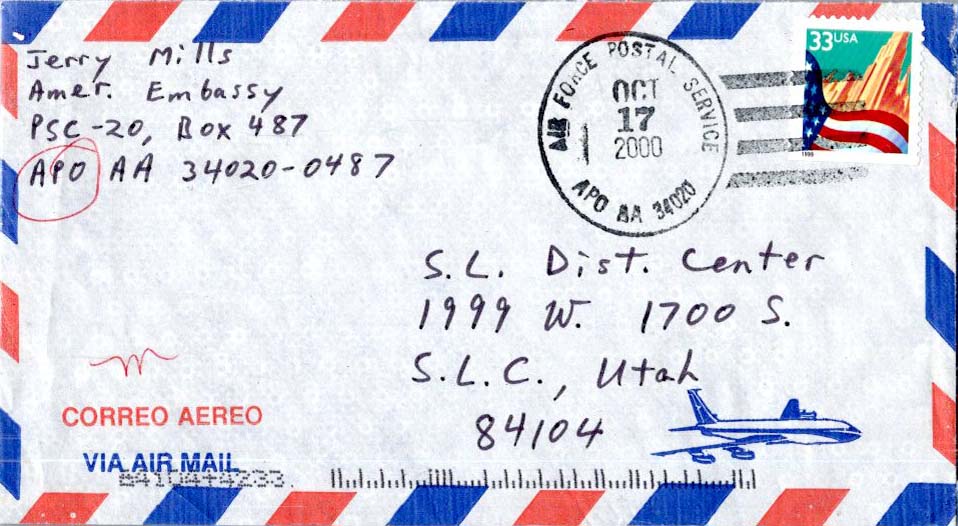 Jerry Mills
Amer. Embassy
PSC-20, Box 487
APO AA 34020-0487
AIR FORCE POSTAL SERVICE
OCT
17
2000
APO AA 34020
33USA
1999
S.L. Dist. Center
1999 W. 1700 S.
S.L.C., Utah
84104
CORREO AEREO
VIA AIR MAIL
84104+4233